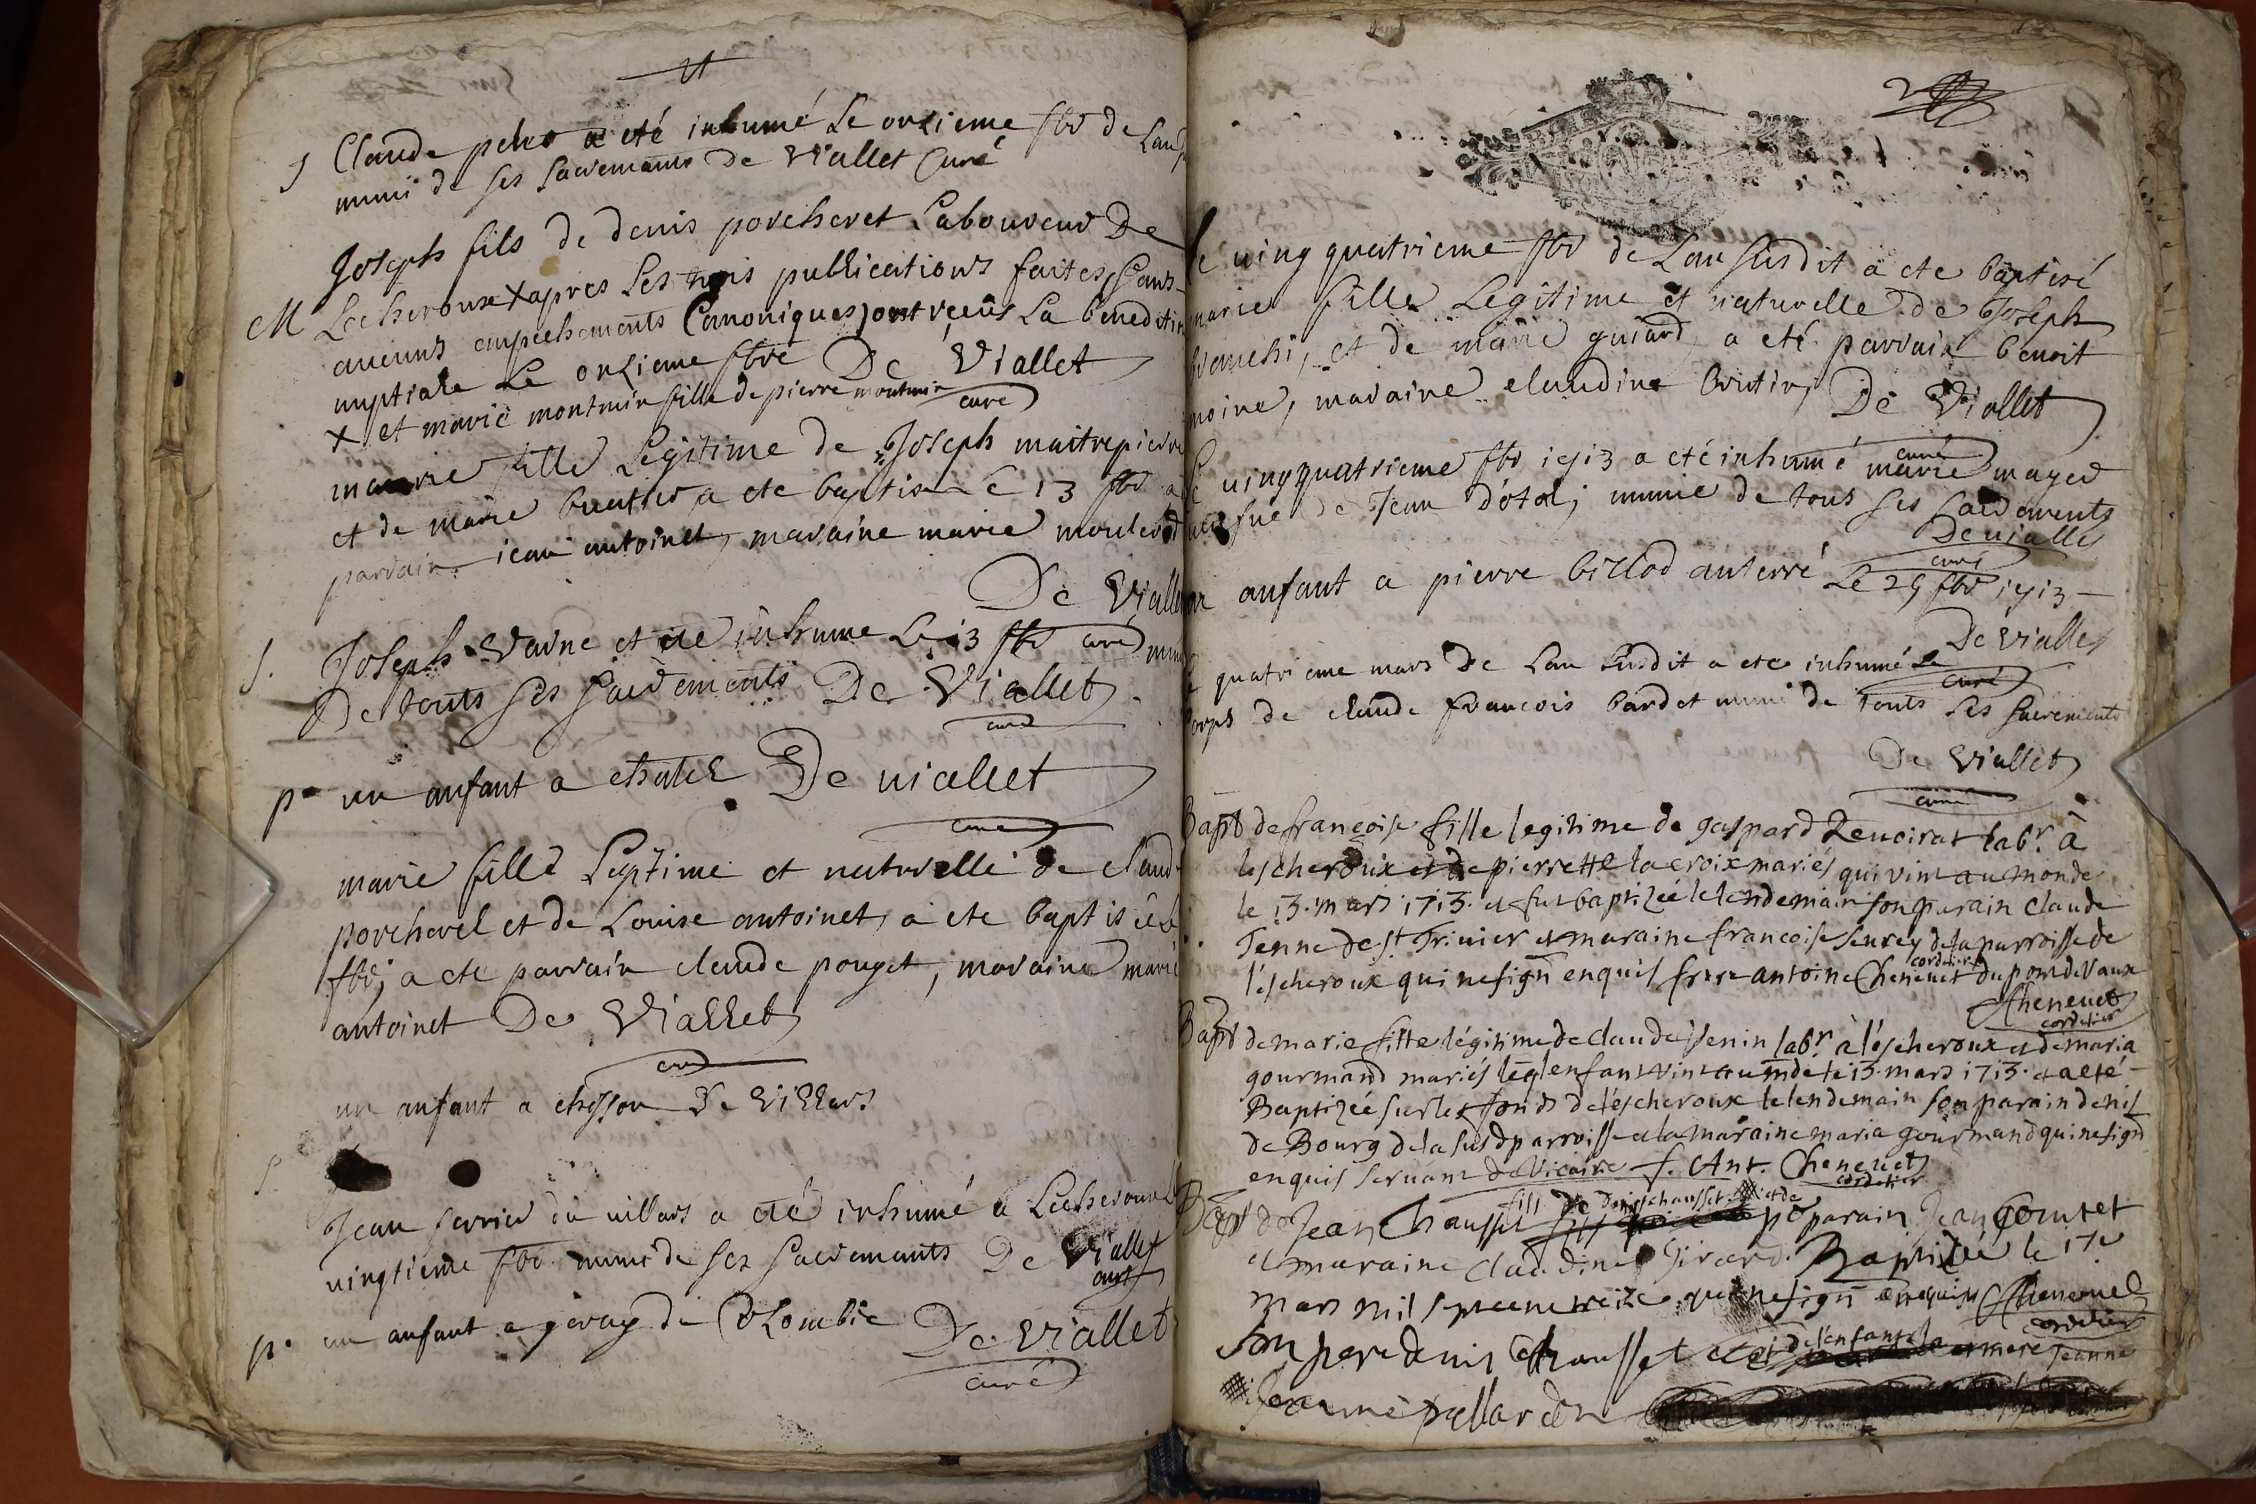 Claude a eté inhumé Le onzieme fbr de Lan
muni de ses sacremants De Viallet Curé
Joseph fils de denis porcheret Laboureur De
M Lecheroux X apres Les trois publications faites sans
aucuns empechements Canoniques ont reçeus La benediction
nuptiale Le onzieme fbre De Viallet
curé
X et marie montmin fille de pierre montmin
marie fille Legitime de Joseph maitrepierre
et de marie a ete baptisee 13 fbr a
parrain jean antoinet, maraine marie
De Viallet
curé
S. Joseph Varne et été inhume Le 13 fbr muni
De touts ses sacrements De Viallet
curé
p. un anfant a chatel De viallet
curé
marie fille Legitime et naturelle de claude
porcherel et de Louise antoinet, a ete baptisée
fbr; a ete parrain claude pouget, maraine marie
antoinet De Viallet
curé
un anfant a chosson De villars
S.
Jean ferrier du villars a eté inhumé a Lecheroux
vingtieme fbr muni de ses sacremants De Viallet
curé
p. un anfant a geray de Colombie De Viallet
curé
le vingquatrieme fbr de Lan susdit a ete baptisé
marie fille Legitime et naturelle de Joseph
bianchi, et de marie guiard, a eté parrain benoit
moine, maraine claudine brutin, De Viallet
curé
Le vingquatrieme fbr 1713 a eté inhumé marie mayer
de Jean dotal; munie de tous ses sacrements
De Viallet
curé
un anfant a pierre billod anterré Le 25 fbr 1713
De Viallet
curé
quatrieme mars De Lan susdit a ete inhumé Le
corps de claude francois bardet muni de touts ses sacrements
De Viallet
curé
Bapt de françoise fille legitime de gaspard Renoirat labr. à
lescheroux et de pierrette lacroix mariés qui vint au monde
le 13. mars 1713. et fut baptizée le lendemain son parain claude
Tenne de St. Trivier et maraine françoise seurey de la parroisse de
l'escheroux qui ne sign enquis frere antoine Chenevet cordelier du pont de Vaux
Chenevet
cordelier
Bapt de marie fille légitime de claude jsenin labr. à l'escheroux et de maria
gourmand mariés leql enfant vint au mde le 13. mars 1713. et a eté
Baptizée sur les fonds de l'escheroux le lendemain son parain denis
de Bourg de la susd parroisse et la maraine maria gourmand qui ne sign
enquis servant de Vicaire f. Ant. Chenevet
cordelier
Bapt de Jean Chausset fils de denis chausset et de parain Jean Gouret
et maraine claudine Girard. Baptizée le 17e
mars mil sept cent treize qui ne sign enquis Chenevet
cordelier
Son pere denis Chausset et de l'enfant la et mere jeanne
Jeanne pallardon